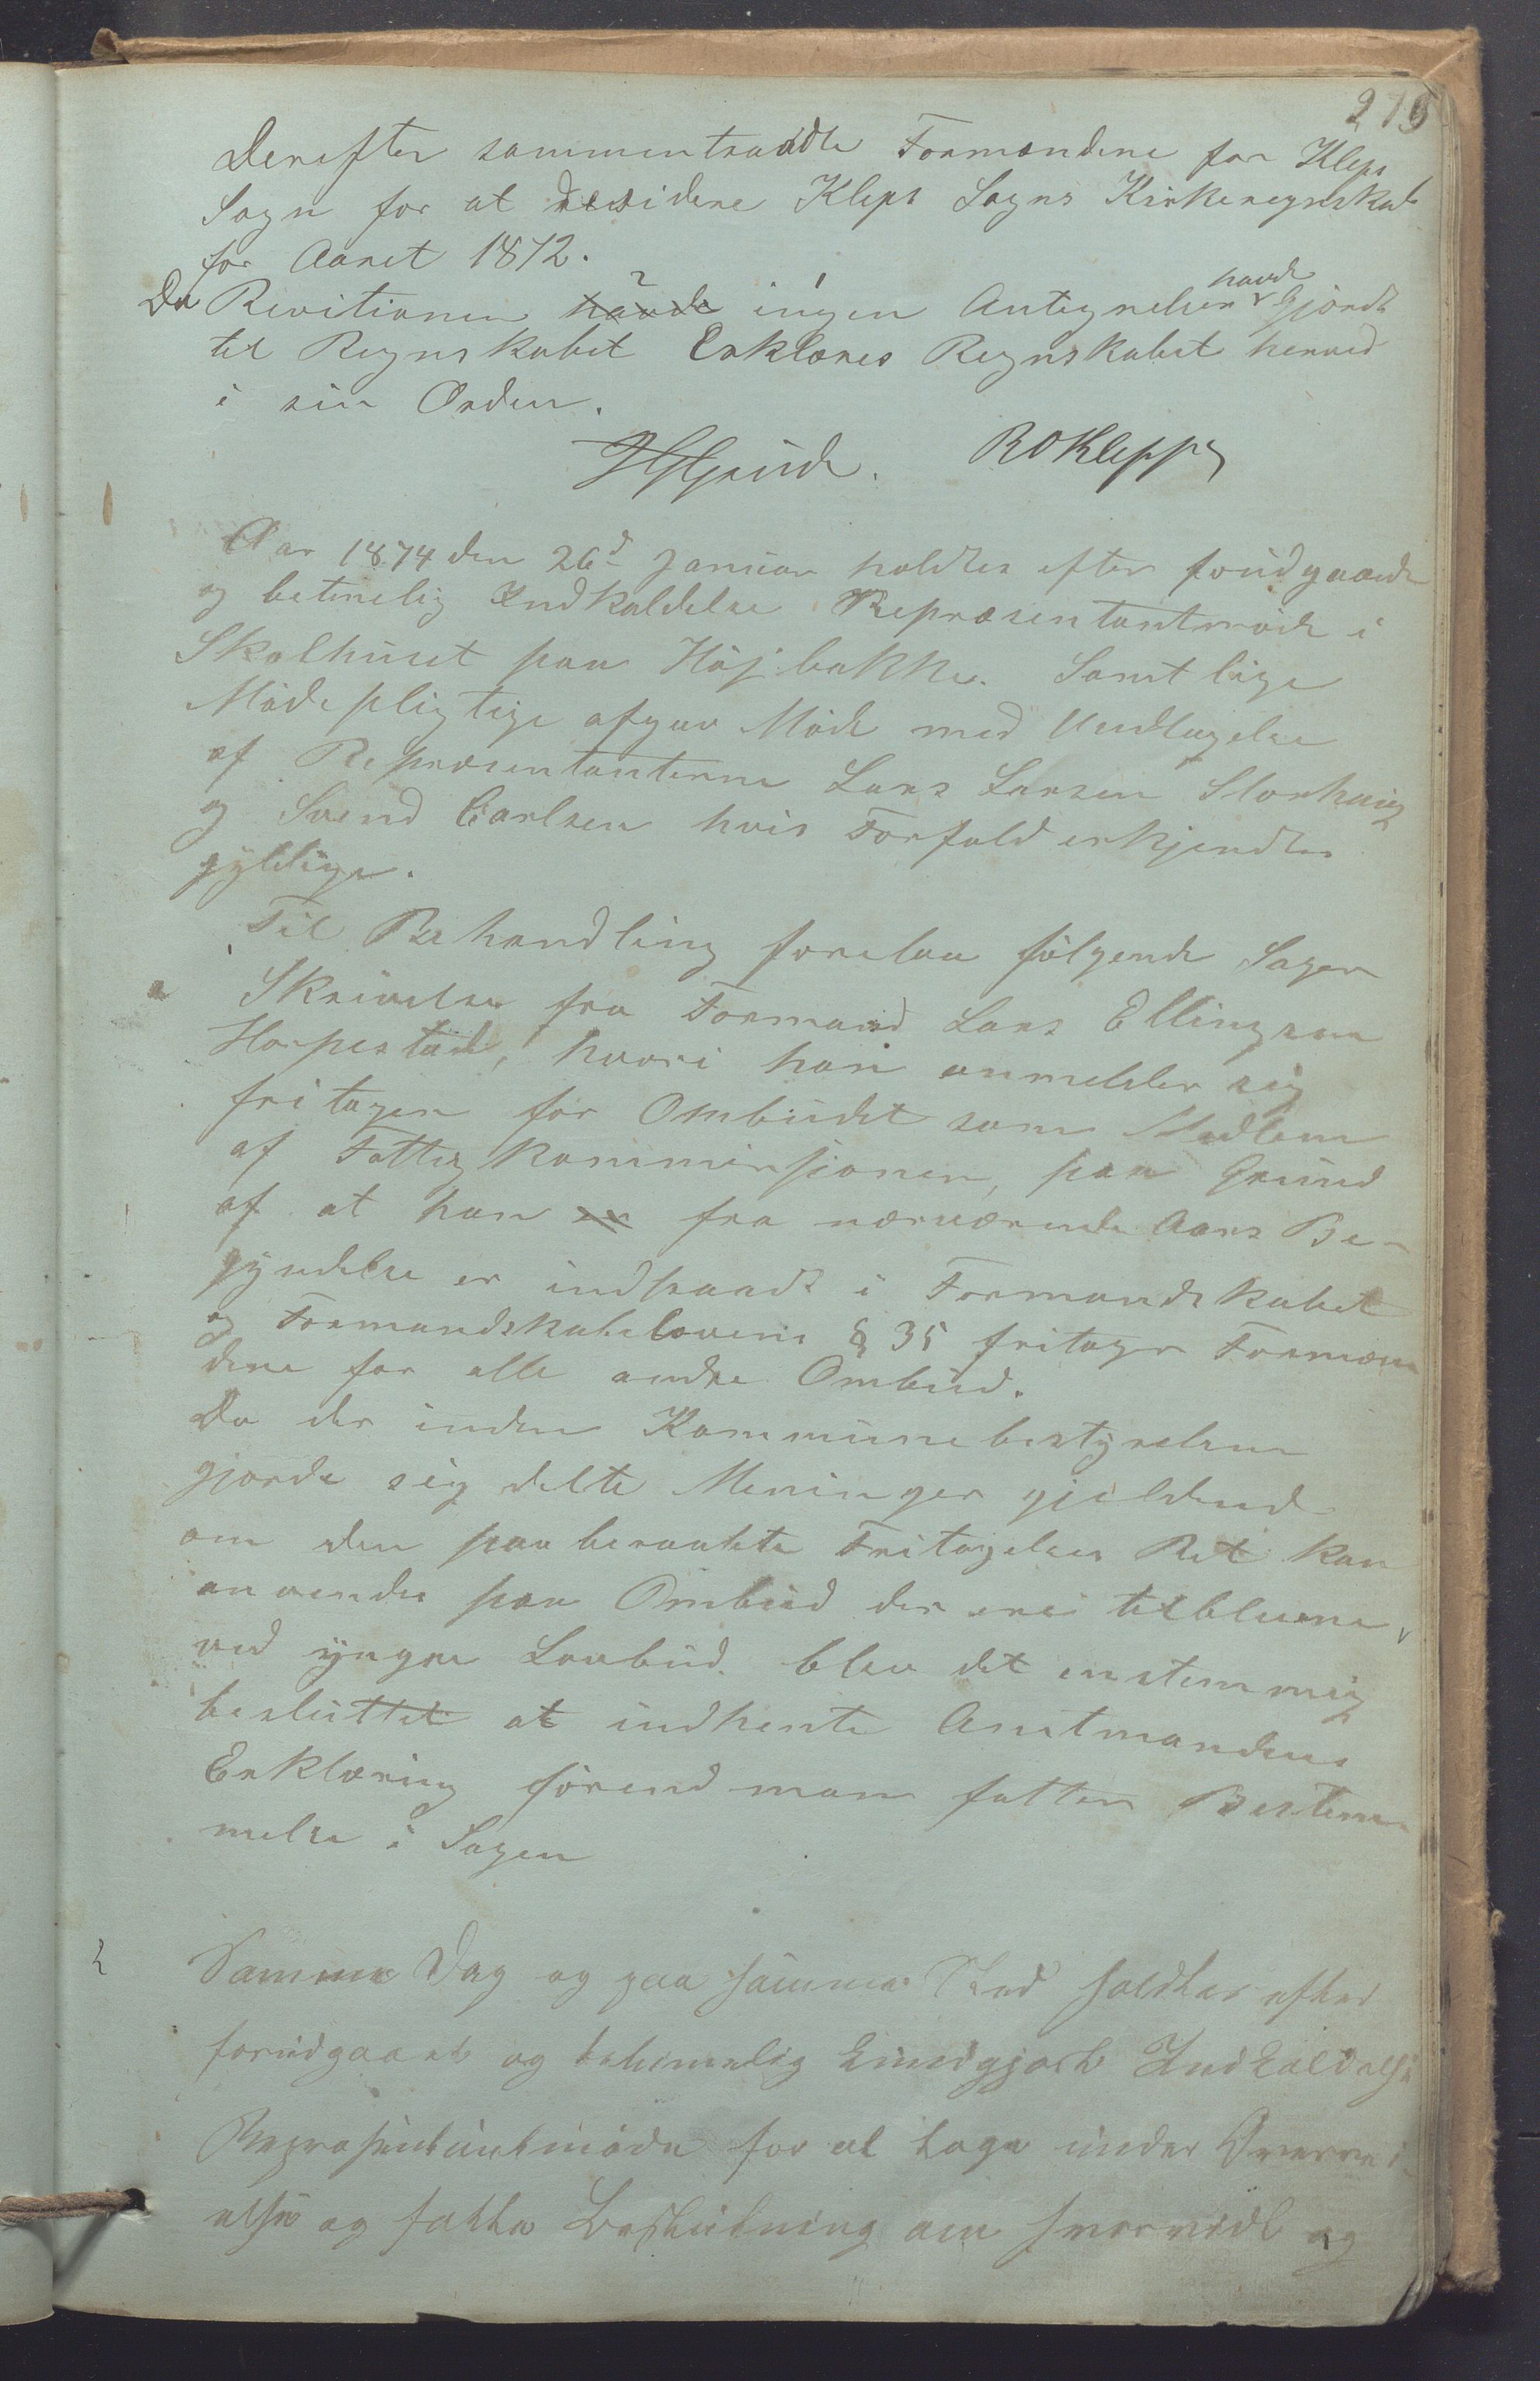 275
Derefter sammentraadte Formændene for Klep
Sogn for at desidere Kleps Sogns Kirkeregnskab
for Aaret 1872.
Da Revitionen havde ingen Antegnelser havde Gjordt
til Regnskabet Erklæres Regnskabet herved
i sin Orden.
ROKlepp
Aar 1874 den 26d Januar holdtes efter forudgaaende
og betimelig Indkaldelse Repræsentantmøde i
Skolhuset paa Höjbakke. Samtlige
Mödepligtige afgav Möde med Undtagelse
af Repræsentanterne Lars Larsen Storhaug
og Svend Carlsen hvis Forfald erkjendtes
gyldige.
Til Behandling forelaa fölgende Sager
a Skrivelse fra Formand Lars Ellingsen
Horpestad, hvori han anmelder sig
fritagen for Ombudet som Medlem
af Fattigkommissjonen, paa Grund
af at han er fra nærværende Aars Be-
gyndelse er indtraadt i Formandskabet
og Formandskabslovens § 35 fritager Formæn
dene for alle andre Ombud.
Da der inden Kommunebestyrelsen
gjorde sig delte Meninger gjeldend
om den paaberaabte Fritagelses Ret kan
anvendes paa Ombud der ere tilblevne
ved yngre Lovbud. blev det enstemmig
besluttet at indhente Amtmandens
Erklæring förend man fatter Bestem
melse i Sagen
2 Samme Dag og paa samme Sted holdtes efter
forudgaaet og betimelig kundgjort Indkaldelse
Repræsentantmöde for at tage under Overvei
else og fatte Beslutning om hvorvidt og